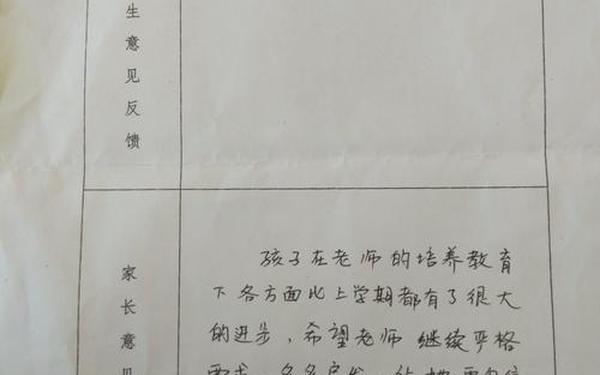 生
意
见
反
馈
家
长
意
见
孩子在老师的培养教育
下各方面比上学期都有了很大
的进步，希望老师继续严格
要求，多多